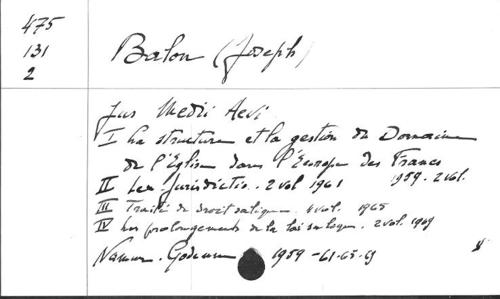 475
131
2
Balon (Joseph)
Jus Medii Aevi
I La structure et la gestion du Domaine
de l'Eglise dans l'Europe des Francs
1959. 2 vol.
II Lex Jurisdictio. 2 vol 1961
III Traité de droit salique. 4 vol. 1965
IV Les prolongements de la loi salique. 2 vol. 1969
Namur. Godenne 1959 - 61-65-69